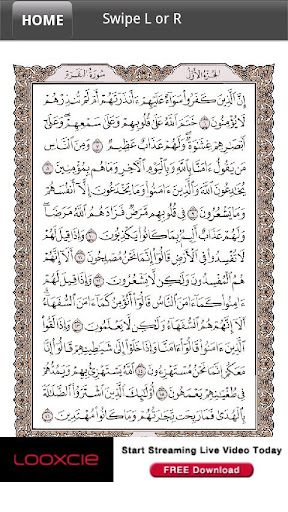 HOME
Swipe L or R
الجزء الأول
سورة البقرة
إِنَّ ٱلَّذِينَ كَفَرُوا۟ سَوَآءٌ عَلَيْهِمْ ءَأَنذَرْتَهُمْ أَمْ لَمْ تُنذِرْهُمْ
لَا يُؤْمِنُونَ ٦ خَتَمَ ٱللَّهُ عَلَىٰ قُلُوبِهِمْ وَعَلَىٰ سَمْعِهِمْ وَعَلَىٰٓ
أَبْصَـٰرِهِمْ غِشَـٰوَةٌ وَلَهُمْ عَذَابٌ عَظِيمٌ ٧ وَمِنَ ٱلنَّاسِ
مَن يَقُولُ ءَامَنَّا بِٱللَّهِ وَبِٱلْيَوْمِ ٱلْـَٔاخِرِ وَمَا هُم بِمُؤْمِنِينَ ٨
يُخَـٰدِعُونَ ٱللَّهَ وَٱلَّذِينَ ءَامَنُوا۟ وَمَا يَخْدَعُونَ إِلَّآ أَنفُسَهُمْ
وَمَا يَشْعُرُونَ ٩ فِى قُلُوبِهِم مَّرَضٌ فَزَادَهُمُ ٱللَّهُ مَرَضًا
وَلَهُمْ عَذَابٌ أَلِيمٌۢ بِمَا كَانُوا۟ يَكْذِبُونَ ١٠ وَإِذَا قِيلَ لَهُمْ
لَا تُفْسِدُوا۟ فِى ٱلْأَرْضِ قَالُوٓا۟ إِنَّمَا نَحْنُ مُصْلِحُونَ ١١ أَلَآ إِنَّهُمْ
هُمُ ٱلْمُفْسِدُونَ وَلَـٰكِن لَّا يَشْعُرُونَ ١٢ وَإِذَا قِيلَ لَهُمْ
ءَامِنُوا۟ كَمَآ ءَامَنَ ٱلنَّاسُ قَالُوٓا۟ أَنُؤْمِنُ كَمَآ ءَامَنَ ٱلسُّفَهَآءُ
أَلَآ إِنَّهُمْ هُمُ ٱلسُّفَهَآءُ وَلَـٰكِن لَّا يَعْلَمُونَ ١٣ وَإِذَا لَقُوا۟
ٱلَّذِينَ ءَامَنُوا۟ قَالُوٓا۟ ءَامَنَّا وَإِذَا خَلَوْا۟ إِلَىٰ شَيَـٰطِينِهِمْ قَالُوٓا۟ إِنَّا
مَعَكُمْ إِنَّمَا نَحْنُ مُسْتَهْزِءُونَ ١٤ ٱللَّهُ يَسْتَهْزِئُ بِهِمْ وَيَمُدُّهُمْ
فِى طُغْيَـٰنِهِمْ يَعْمَهُونَ ١٥ أُو۟لَـٰٓئِكَ ٱلَّذِينَ ٱشْتَرَوُا۟ ٱلضَّلَـٰلَةَ
بِٱلْهُدَىٰ فَمَا رَبِحَت تِّجَـٰرَتُهُمْ وَمَا كَانُوا۟ مُهْتَدِينَ ١٦
LOOXCIE
Start Streaming Live Video Today
FREE Download